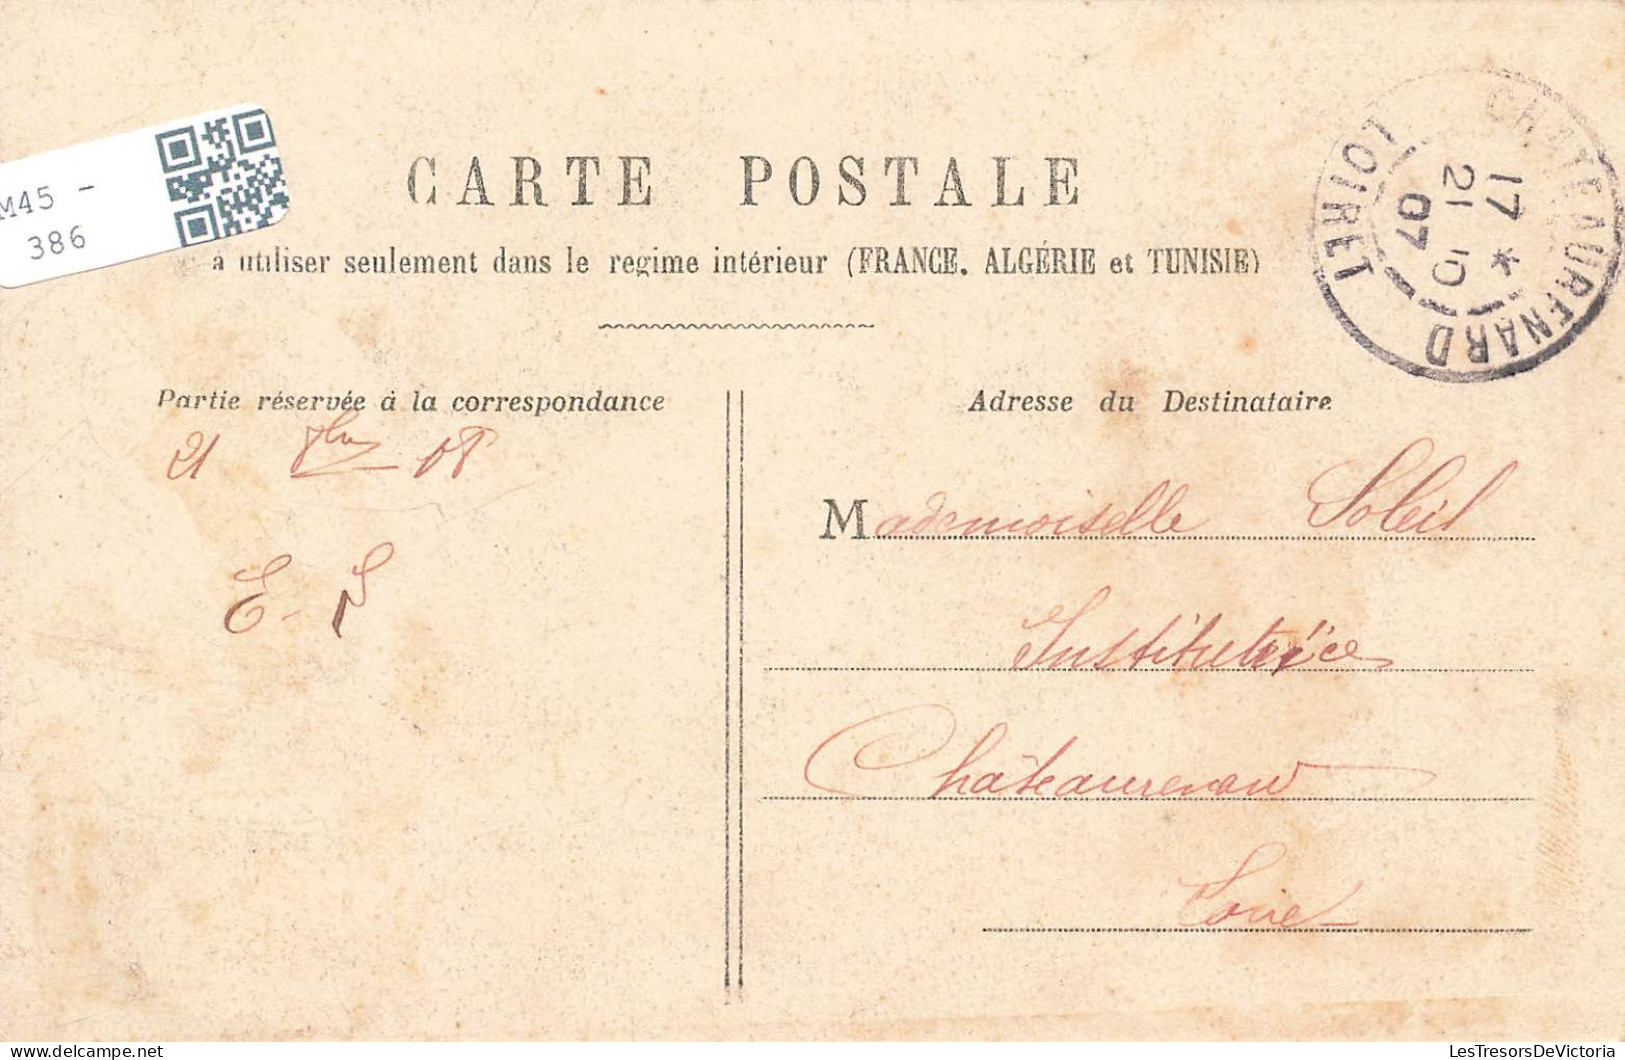 CARTE POSTALE
à utiliser seulement dans le regime intérieur (FRANCE, ALGÉRIE et TUNISIE)
M45 -
386
CHATEAURENARD
LOIRET
17 *
21 10
07
Partie réservée à la correspondance
21
E - S
Adresse du Destinataire
Mademoiselle Soleil
Institutrice
Châteaurenard
Loiret
LesTresorsDeVictoria